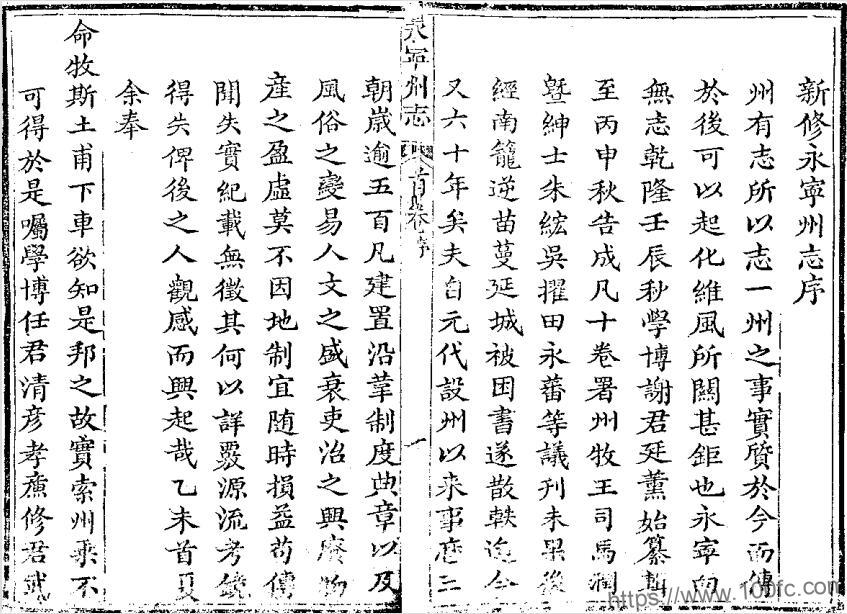 新修永寧州志序
州有志所以志一州之事實質於今而傳
於後可以起化維風所關甚鉅也永寧向
無志乾隆壬辰秋學博謝君廷薰始纂輯
至丙申秋告成凡十卷署州牧王司馬潤
曁紳士朱紘吳擢田永蕃等議刊未果後
經南籠逆苗蔓延城被困書遂散軼迄今
又六十年矣夫自元代設州以來事歷三
永寧州志
首卷序
一
朝歲逾五百凡建置沿革制度典章以及
風俗之變易人文之盛衰吏治之興廢物
產之盈虛莫不因地制宜随時損益苟傳
聞失實紀載無徵其何以詳覈源流考鏡
得失俾後之人觀感而興起哉乙未首夏
余奉
命牧斯土甫下車欲知是邦之故實索州乘不
可得於是囑學博任君清彦孝廉修君武
https://www.100fc.com